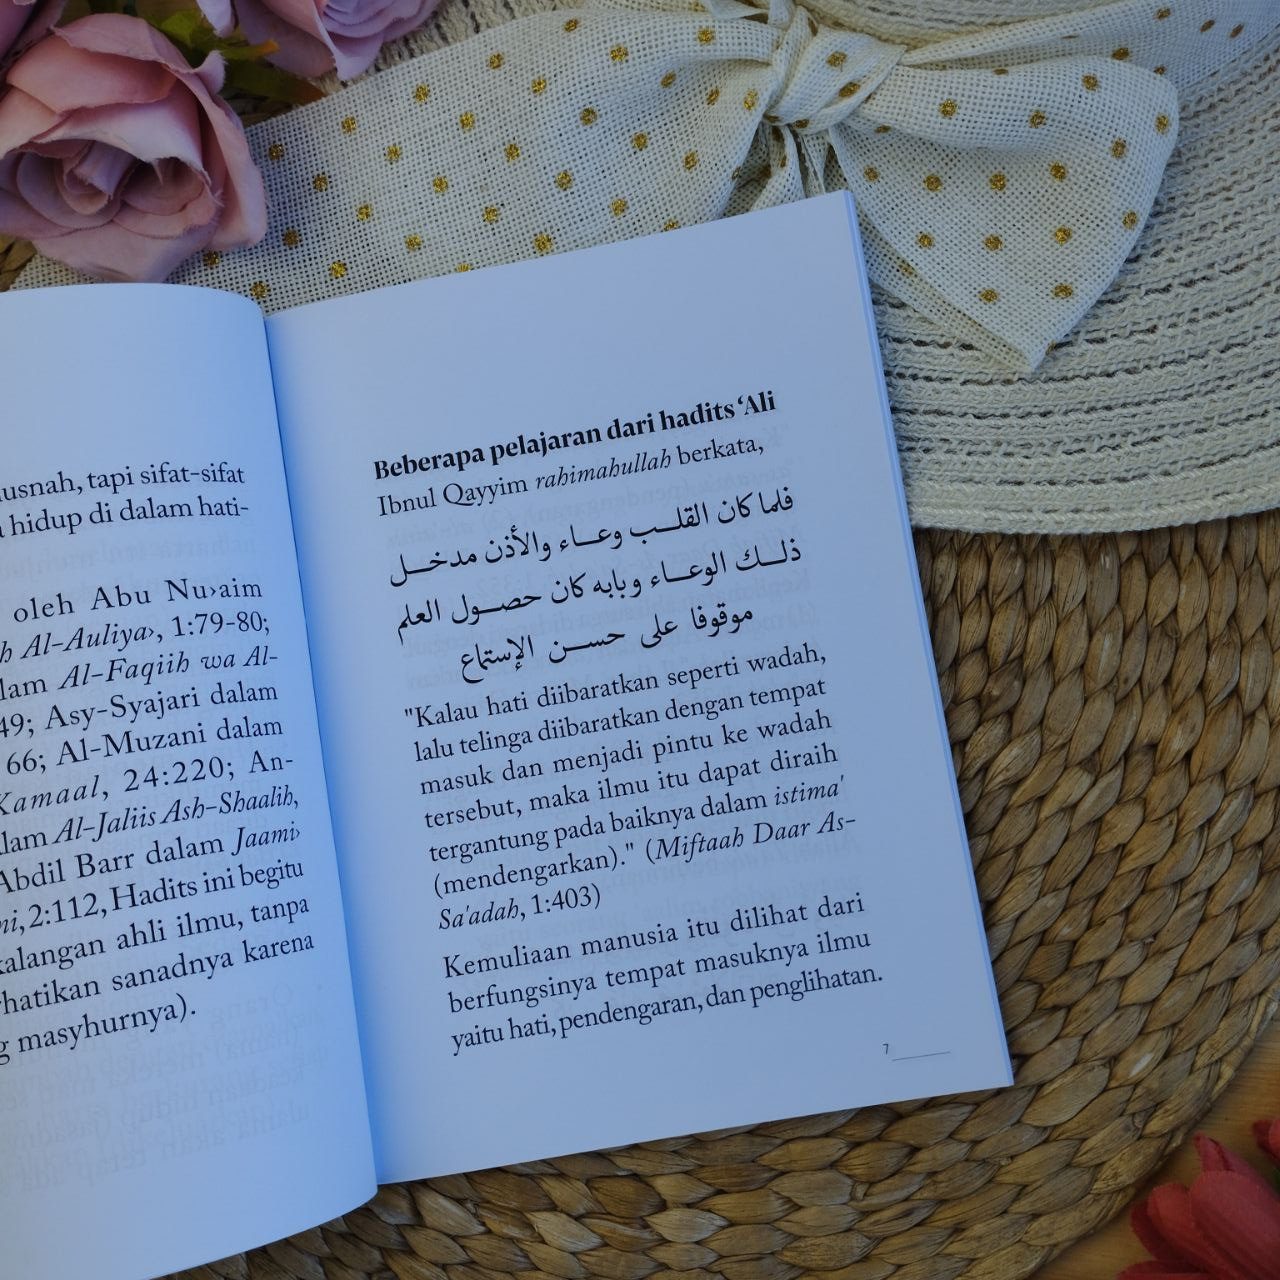 usnah, tapi sifat-sifat
hidup di dalam hati-
oleh Abu Nu›aim
Al-Auliya›, 1:79-80;
Al-Faqiih wa Al-
49; Asy-Syajari dalam
66; Al-Muzani dalam
Kamaal, 24:220; An-
Al-Jaliis Ash-Shaalih,
Abdil Barr dalam Jaami›
2:112, Hadits ini begitu
kalangan ahli ilmu, tanpa
hatikan sanadnya karena
masyhurnya).
Beberapa pelajaran dari hadits ‘Ali
Ibnul Qayyim rahimahullah berkata,
فلما كان القلـــب وعـــاء والأذن مدخـــل
ذلـــك الوعـــاء وبابه كان حصـــول العلم
موقوفا على حســـن الإستماع
"Kalau hati diibaratkan seperti wadah,
lalu telinga diibaratkan dengan tempat
masuk dan menjadi pintu ke wadah
tersebut, maka ilmu itu dapat diraih
tergantung pada baiknya dalam istima'
(mendengarkan)." (Miftaah Daar As-
Sa'adah, 1:403)
Kemuliaan manusia itu dilihat dari
berfungsinya tempat masuknya ilmu
yaitu hati, pendengaran, dan penglihatan.
7